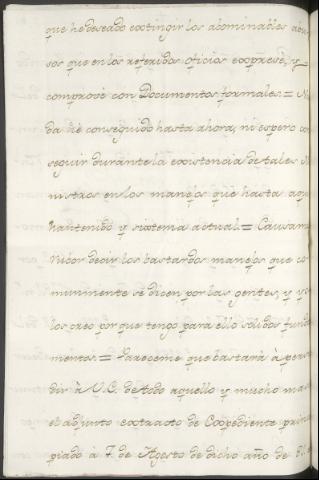 que he deseado extingir los abominables abu
sos que en los referidos oficios exprese, y
comprové con Documentos formales = Na
da hé conseguido hasta ahora, ni espero con
seguir durante la existencia de tales Mi
nistros en los manejos que hasta aqui
han tenido y sixtema actual = Causam
decir los bastardos manejos que co
munmente se dicen por las gentes, y yo
los creo por que tengo para ello solidos funda
mentos = Pareceme que bastará à persua
dir à V.E. de todo aquello y mucho mas
el adjunto extracto de Expediente princi
piado à 7 de Agosto de dicho año de 81.